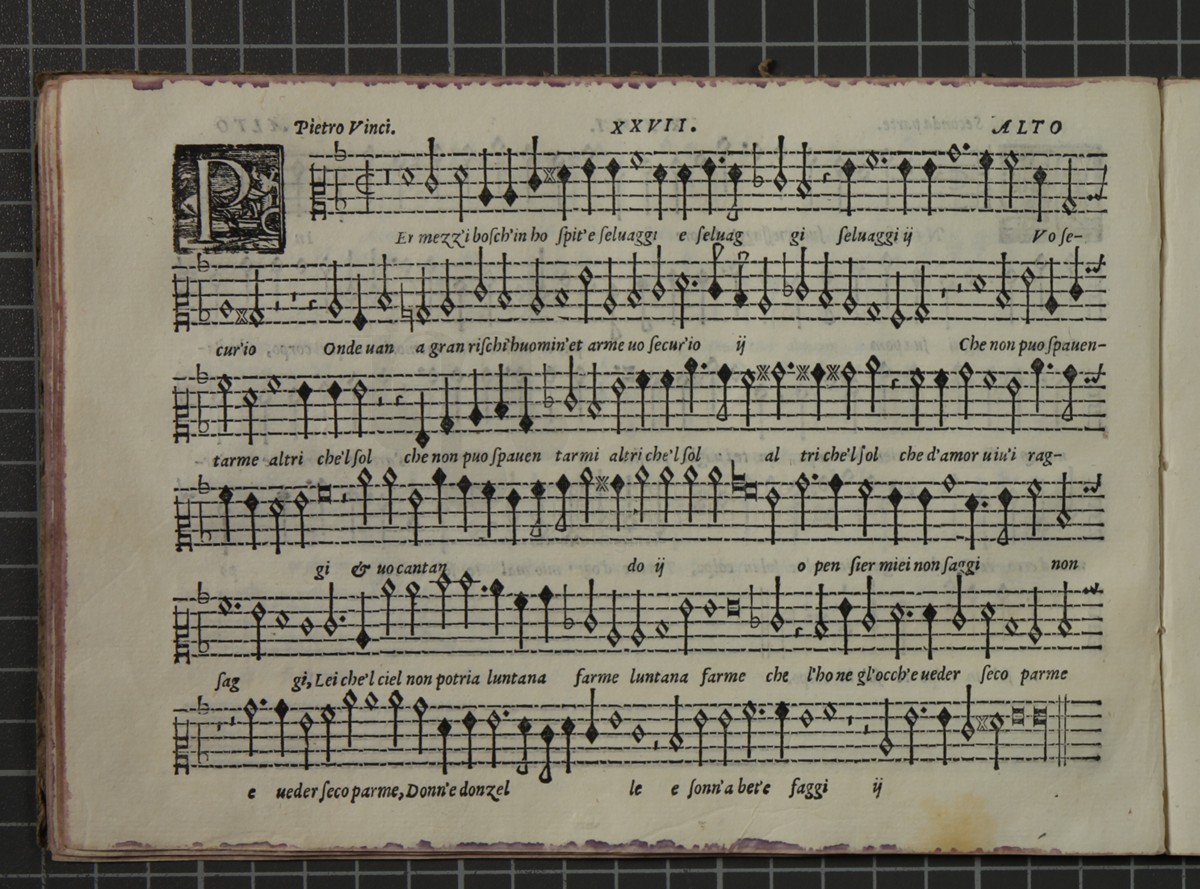 Pietro Vinci. XXVII. ALTO
PEr mezz'i bosch'in ho spit'e seluaggi e seluag gi seluaggi ij Vo se-
cur'io Onde uan a gran rischi'huomin'et arme uo secur'io ij Che non puo spauen-
tarme altri che'l sol che non puo spauen tarmi altri che'l sol al tri che'l sol che d'amor uiu'i rag-
gi & uo cantan do ij o pen sier miei non saggi non
sag gi, Lei che'l ciel non potria luntana farme luntana farme che l'ho ne gl'occh'e ueder seco parme
e ueder seco parme, Donn'e donzel le e sonn'a bet'e faggi ij